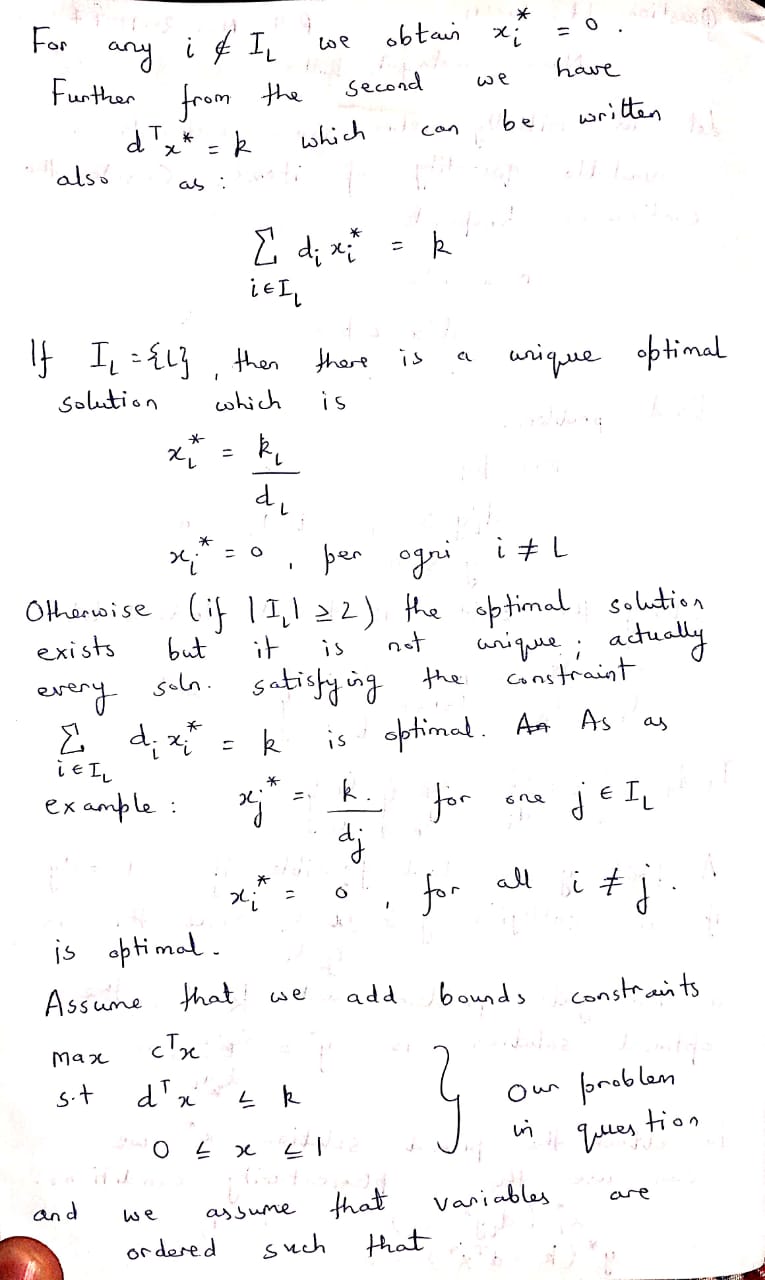 For any i ∉ I_L we obtain x_i^* = 0.
Further from the second we have
d^T x^* = k which can be written
also as :
Σ_{i∈I_L} d_i x_i^* = k
If I_L = {L}, then there is a unique optimal
solution which is
x_L^* = k_L / d_L
x_i^* = 0, per ogni i ≠ L
Otherwise (if |I_L| ≥ 2) the optimal solution
exists but it is not unique; actually
every soln. satisfying the constraint
Σ_{i∈I_L} d_i x_i^* = k is optimal. As as
example : x_j^* = k / d_j for one j ∈ I_L
x_i^* = 0, for all i ≠ j.
is optimal.
Assume that we add bounds constraints
max c^T x
s.t d^T x ≤ k } our problem
0 ≤ x ≤ 1 in question
and we assume that variables are
ordered such that